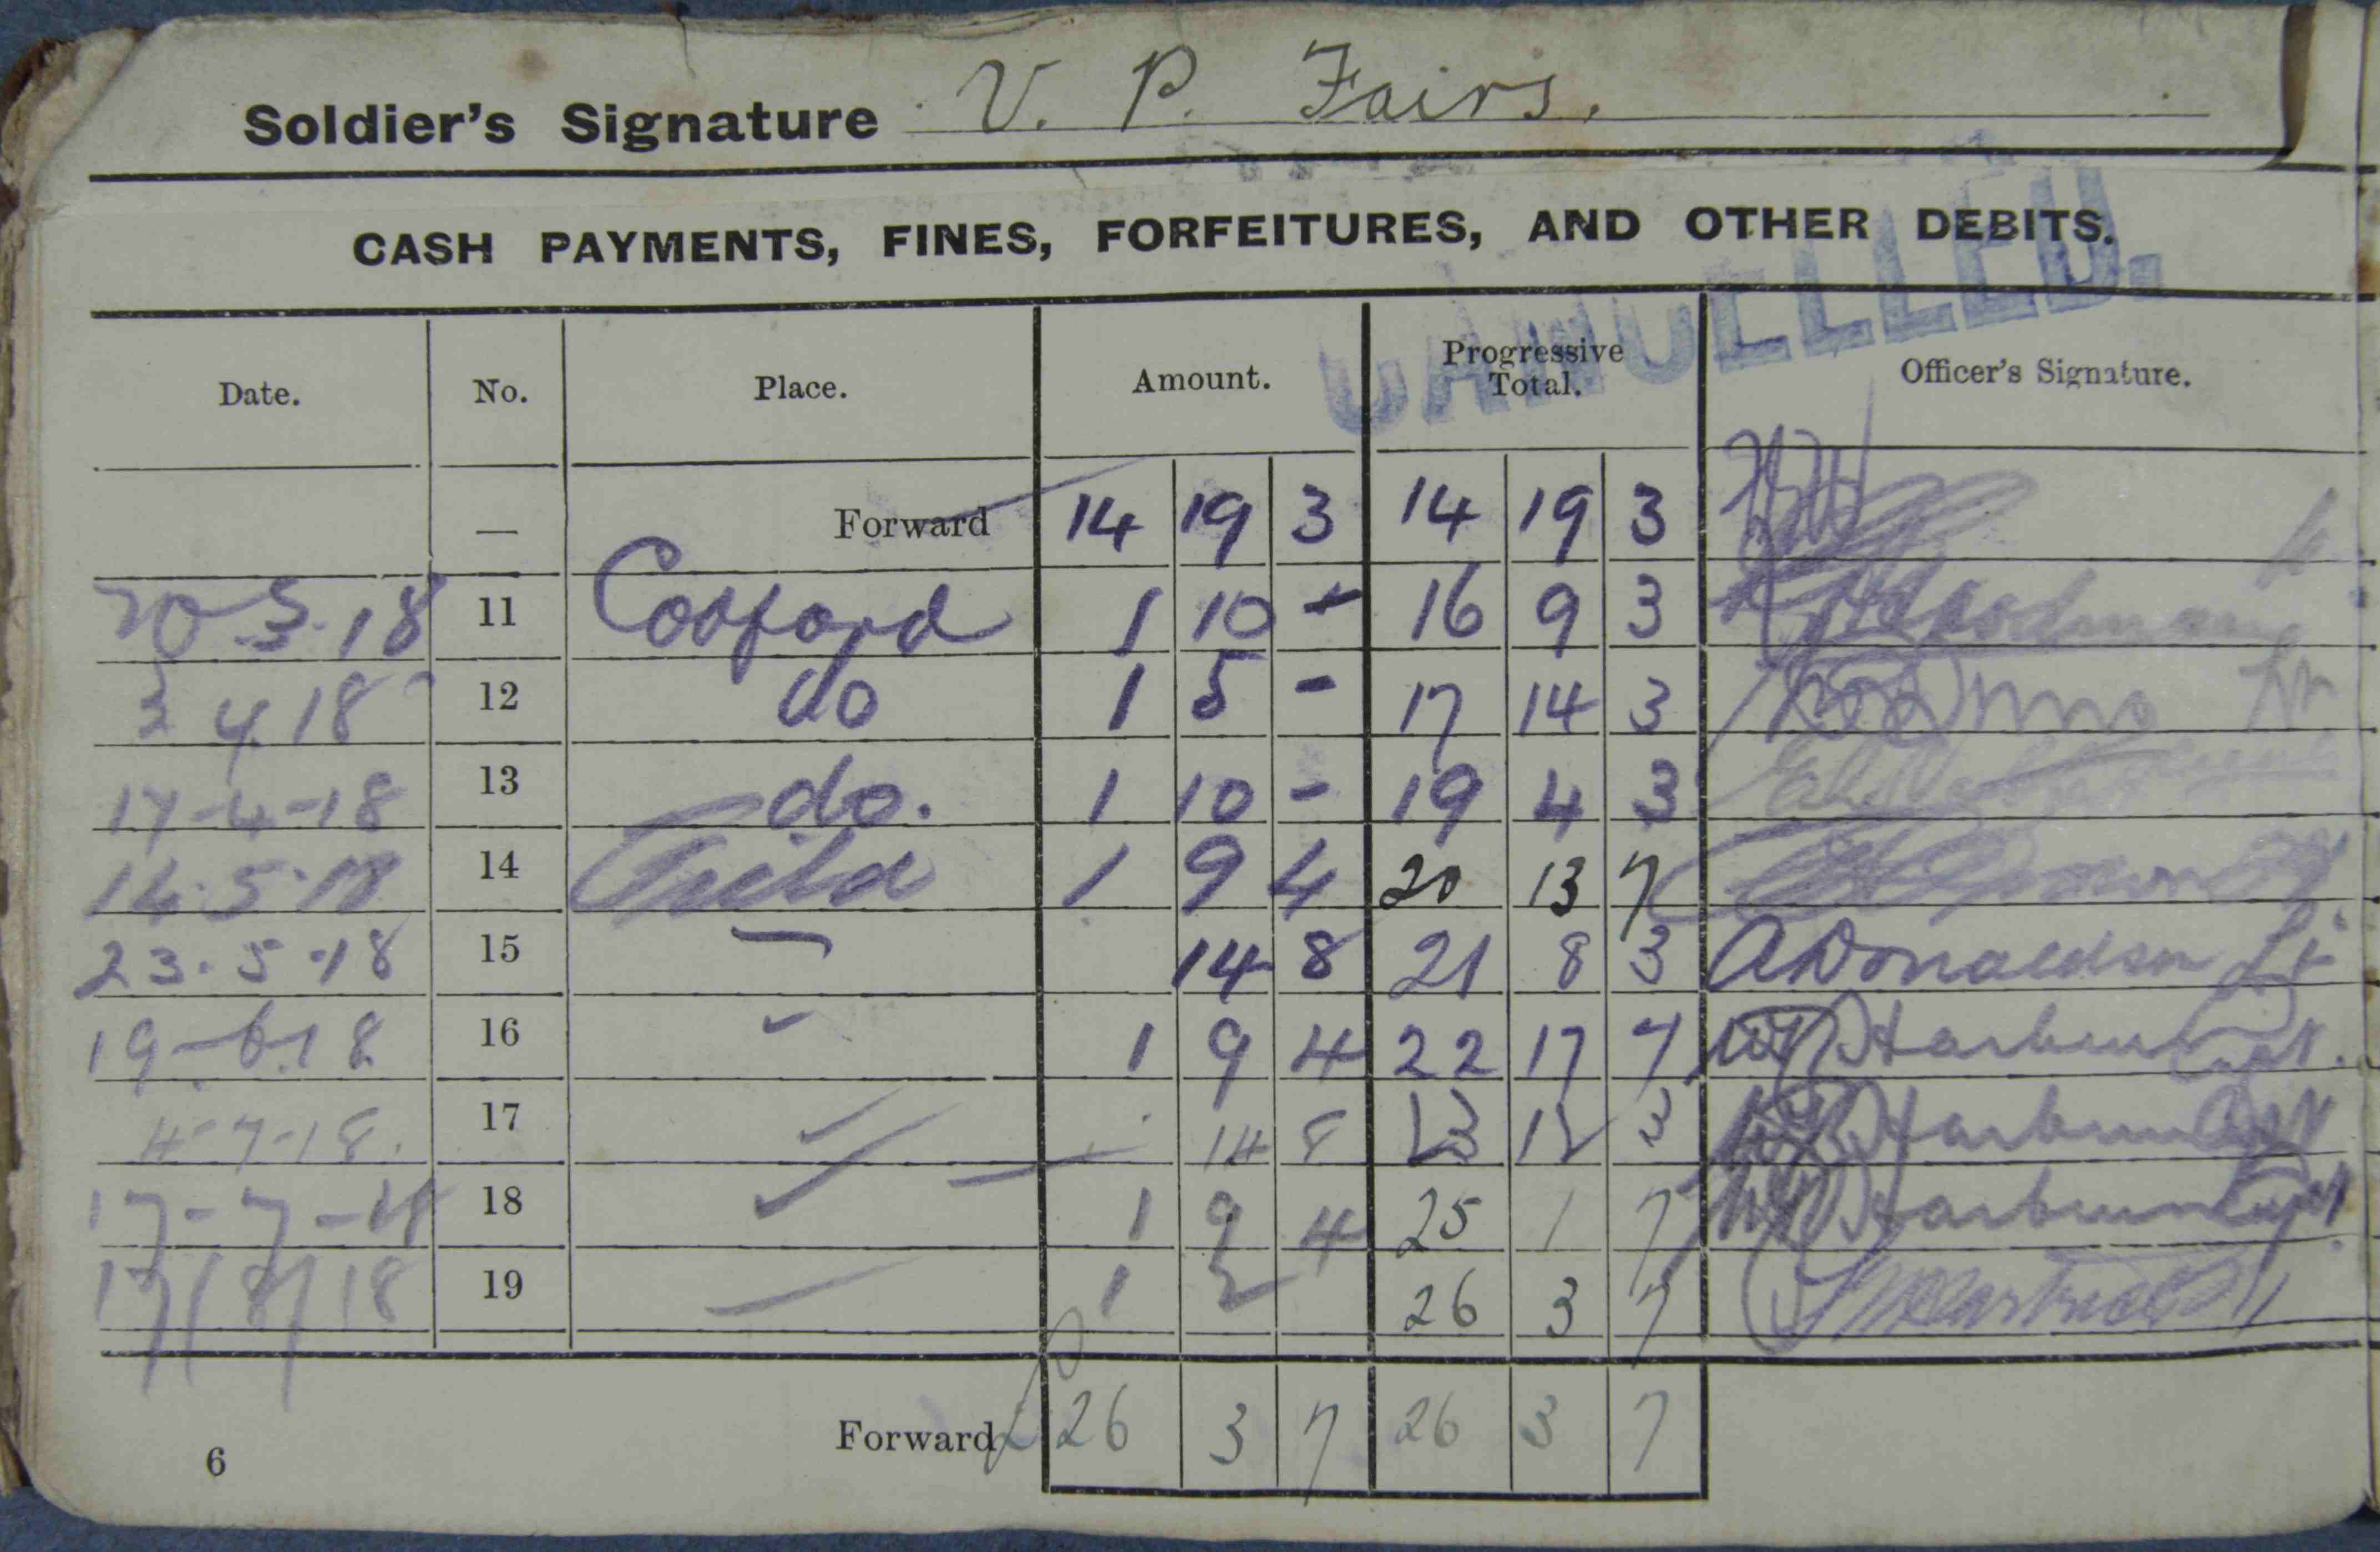 Soldier's Signature V. P. Fairs.
CASH PAYMENTS, FINES, FORFEITURES, AND OTHER DEBITS.
CANCELLED.
Date. No. Place. Amount. Progressive Total. Officer's Signature.
— Forward 14 19 3 14 19 3
20-3-18 11 Cosford 1 10 - 16 9 3
3 4 18 12 do 1 5 - 17 14 3
17-4-18 13 do. 1 10 - 19 4 3
14.5.18 14 Field 1 9 4 20 13 7
23.5.18 15 — 14 8 21 8 3 A Donaldson Lt
19-6-18 16 1 9 4 22 17 7 Capt.
4-7-18. 17 14 8 23 12 3 Capt
17-7-18 18 1 9 4 25 1 7 Capt
17/8/18 19 — 1 2 26 3 7
Forward £ 26 3 7 26 3 7
6